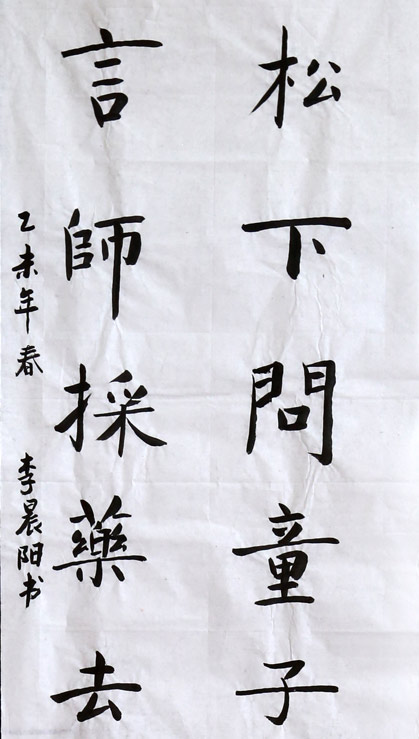 松下問童子
言師採藥去
乙未年春 李晨阳书